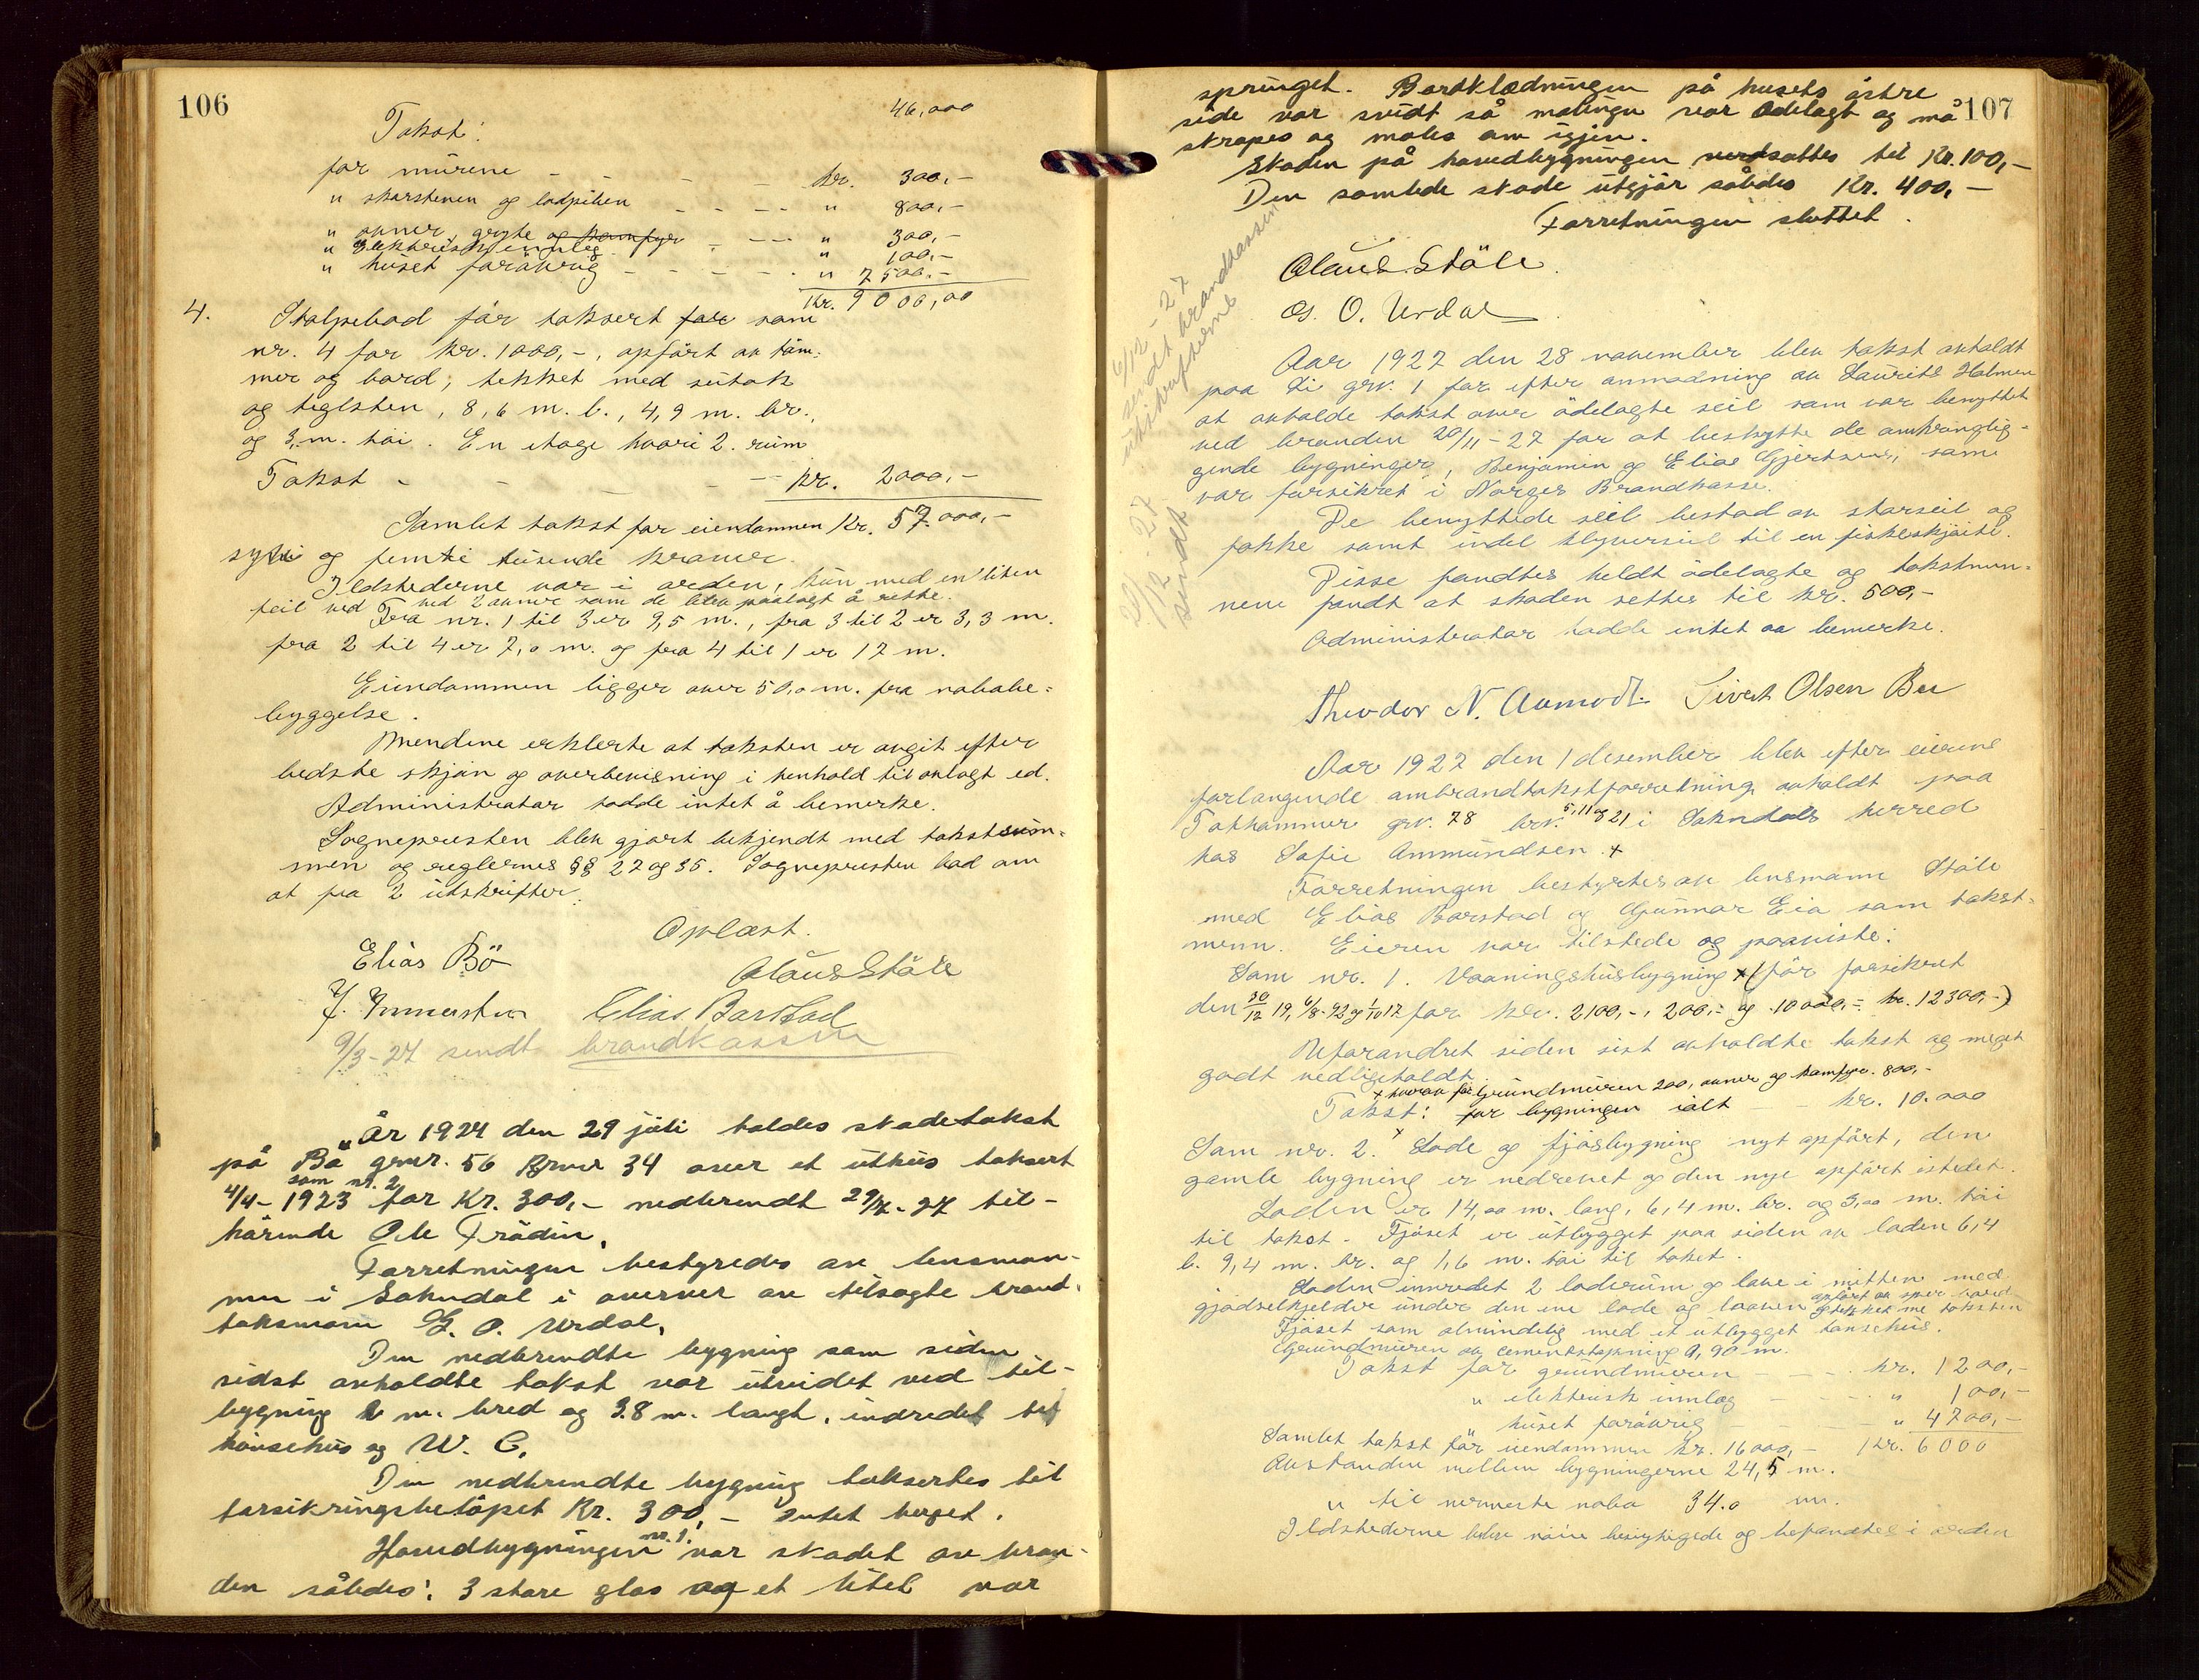 106
46,000
Takst:
for mürene - - - - - kr. 300,-
" skorstenen og ladpiben - - - - " 800,-
" ovner, gryte og komfyr - - - " 300,-
" elektrisk innleg " 100,-
" huset forøvrig - - - - - " 7500,-
Kr. 9000,00
4. Stolpebod før taksert for som
nr. 4 for kr. 1000,-, opført av tøm-
mer og bord, tekket med sutak
og teglsten, 8,6 m. l., 4,9 m. br.,
og 3, m. høi. En etage hvori 2. rüm
Takst - - - - - kr. 2000,-
Samlet takst for eiendommen Kr. 57.000,-
syv og femti tüsende kroner.
Ildstederne var i orden, kün med en liten
feil ved ved 2 ovner som de blev paalagt å rette.
Fra nr. 1 til 3 er 9,5 m., fra 3 til 2 er 3,3 m.
fra 2 til 4 er 7,0 m. og fra 4 til 1 er 17 m.
Eiendommen ligger over 50,0 m. fra nabobe-
byggelse.
Mendene erklerte at taksten er avgit efter
bedste skjøn og overbevisning i henhold til avlagt ed.
Administrator hadde intet å bemerke.
Sognepresten blev gjort bekjendt med takstsüm-
men og reglernes §§ 27 og 35. Sognepresten bad om
at faa 2 ütskrifter.
Oplæst.
Elias Bö Olaus Ståle
J. Elias Barstad
9/3-27 sendt brandkassen
" År 1927 den 29 juli holdes skadetakst
på Bø gnr. 56 Brnr 34 over et uthus taksert
som nr. 2
4/4-1923 for Kr. 300,- nedbrendt 29/7-27 til-
hørende Ole Frødin.
Forretningen bestyredes av lensman-
nen i Sokndal i overvær av tilsagte brand-
taksmann G. O. Urdal.
Den nedbrendte bygning som siden
sidst avholdte takst var utvidet ved til-
bygning 2 m. bred og 3.8 m. langt, indredet til
hønsehus og W. C.
Den nedbrendte bygning taksertes til
forsikringsbeløpet Kr. 300,- Intet berget.
Hovedbygningen nr. 1. var skadet av bran-
den således: 3 store glas og et litet var
107
springet. Bordklædningen på husets østre
side var svidt så malingen var ødelagt og må
skrapes og males om igjen.
Skaden på hovedbygningen verdsattes til Kr. 100,-
Den samlede skade utgjør således Kr. 400,-
Forretningen sluttet.
Olaus Ståle.
G. O. Urdal
6/12-27
sendt brandkassen
utskrifterne
Aar 1927 den 28 november blev takst avholdt
paa Li gnr. 1 for efter anmodning av Laurits Holmen
at avholde takst over ödelagte seil som var benyttet
ved branden 20/11-27 for at beskytte de omkringlig-
gende bygninger, Benjamin og Elias Gjertsens, som
var forsikret i Norges Brandkasse.
De benyttede seil bestod av storseil og
fokke samt indel klyverseil til en fiskeskjøite.
Disse fandtes heldt ödelagte og takstmen-
nene fandt at skaden settes til kr. 500,-
Administrator hadde intet aa bemerke.
12 27
sendt
Theodor N. Aamodt. Sivert Olsen Bu
Aar 1927 den 1 desember blev efter eierens
forlangende ombrandtakstforretning avholdt paa
Tothammer gnr. 78 brn. 5, 11 og 21 i Sokndals herred
hos Sofie Ammündsen. x
Forretningen bestyrtes av lensmann Ståle
med Elias Barstad og Günnar Eia som takst-
menn. Eieren var tilstede og paaviste:
Som nr. 1. Vaaningshusbygning x (før forsikret
den 30/12 19, 6/8-92 og 1/10 17 for kr. 2100,-, 200,- og 10000,- = kr. 12300,-)
Uforandret siden sist avholdte takst og meget
godt vedlikeholdt.
x hvorav for Gründmüren 200, ovner og komfyr. 800,-
Takst: for bygningen ialt - - kr. 10.000
Som nr. 2. x Lade og fjøsbygning nyt opført, den
gamle bygning er nedrevet og den nye opført istedet.
Laden er 14,00 m. lang, 6,4 m. br. og 3,00 m. høi
til takst. Fjøset er ütbygget paa siden av laden 6,4
l. 9,4 m. br. og 1,6 m. høi til taket.
Laden innredet 2 laderüm og lave i mitten med
gjødselkjelder ünder den ene lade og laaven opført av sper bord og tekket me taksten
Fjøset som almindelig med et ütbygget hønsehüs.
Gründmüren av cementstøpning 1,90 m.
Takst for gründmüren - - - kr. 1200,-
" elektrisk innlæg - - - " 100,-
huset forøvrig - - - " 4700,-
Samlet takst før eiendommen kr. 16000,- Kr. 6000
Avstanden mellem bygningerne 24,5 m.
" til nermeste nabo 34.0 m.
Ildstederne blev nøie besigtigede og befandtes i orden